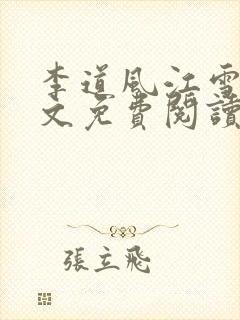 李道風江雪
文免費閱讀
張立飛